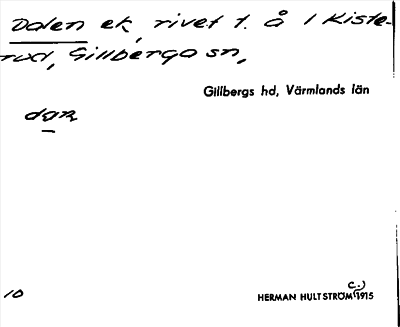 Dalen ek, rivet t. å 1 Kiste-
rud, Gillberga sn,
Gillbergs hd, Värmlands län
dan
10
HERMAN HULTSTRÖM (c.) 1915